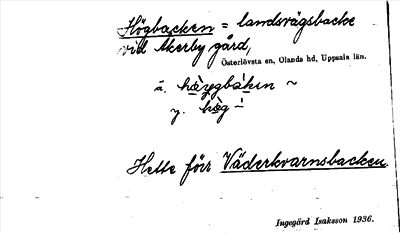 Högbacken = landsvägsbacke
vid Åkerby gård,
Österlövsta sn, Olands hd, Uppsala län.
ä. hø̀gbákɩn ~
y. hø̀g –
Hette förr Väderkvarnsbacken
Ingegärd Isaksson 1936.